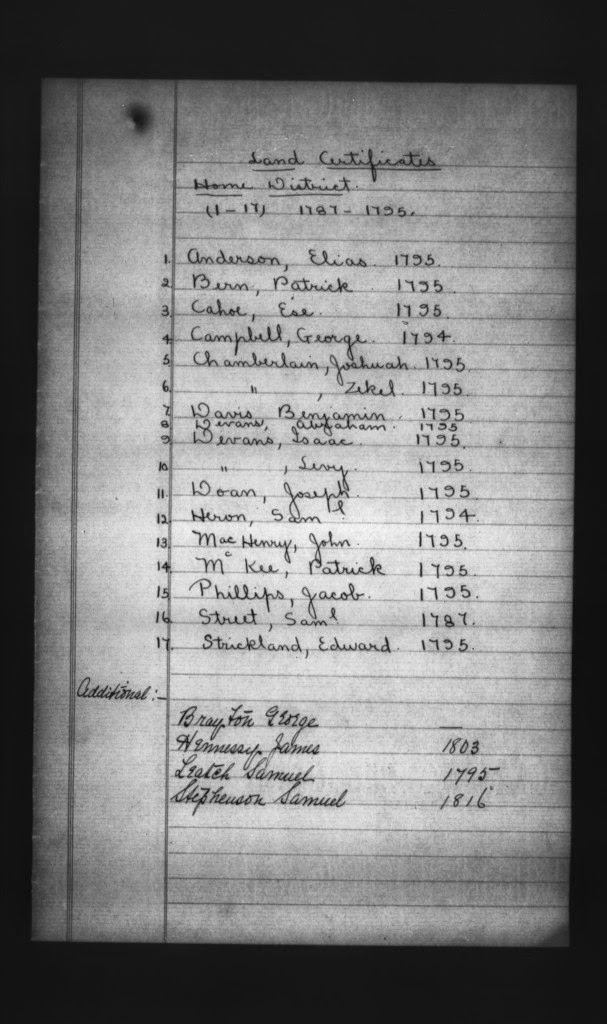 Land Certificates
Home District.
(1-17) 1787-1795.
1. Anderson, Elias. 1795.
2. Bern, Patrick 1795.
3. Cahoe, Ese. 1795.
4. Campbell, George. 1794.
5. Chamberlain, Joshuah. 1795.
6. " , Zekel. 1795.
7. Davis, Benjamin. 1795
8. Devans, Abraham. 1795
9. Devans, Isaac. 1795.
10. " , Levy. 1795.
11. Doan, Joseph. 1795.
12. Heron, Saml. 1794.
13. MacHenry, John. 1795.
14. McKee, Patrick 1795.
15. Phillips, Jacob. 1795.
16. Street, Saml 1787.
17. Strickland, Edward. 1795.
Additional:-
Brayton George —
Hennessy James 1803
Leatch Samuel 1795
Stephenson Samuel 1816